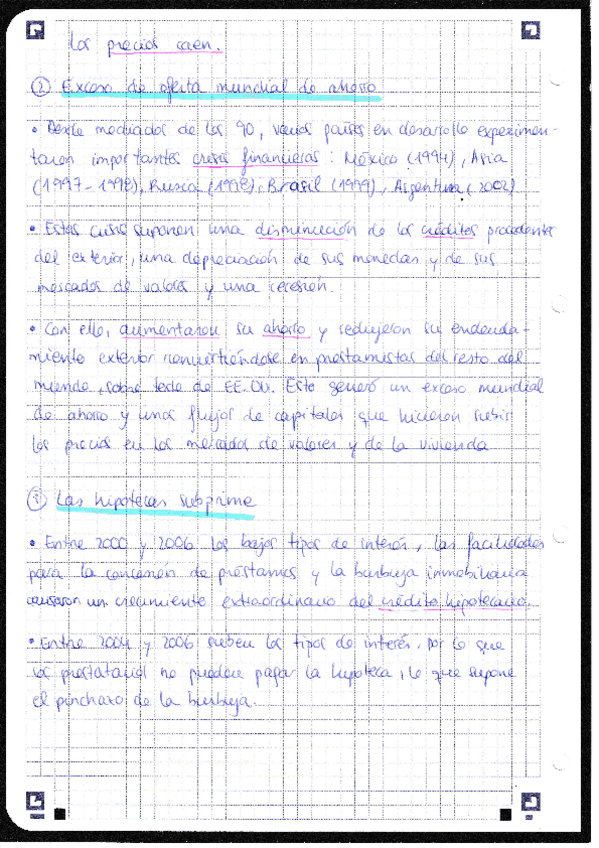 los precios caen.
② Exceso de oferta mundial de ahorro
• Desde mediados de los 90, varios países en desarrollo experimen-
taron importantes crisis financieras: México (1994), Asia
(1997-1998), Rusia (1998), Brasil (1999), Argentina (2002)
• Estas crisis suponen una disminución de los créditos procedentes
del exterior, una depreciación de sus monedas y de sus
mercados de valores y una recesión.
• Con ello, aumentaron su ahorro y redujeron su endeuda-
miento exterior convirtiéndose en prestamistas del resto del
mundo, sobre todo de EE.UU. Esto generó un exceso mundial
de ahorro y unos flujos de capitales que hicieron subir
los precios en los mercados de valores y de la vivienda
③ Las hipotecas subprime
• Entre 2000 y 2006 los bajos tipos de interés, las facilidades
para la concesión de préstamos y la burbuja inmobiliaria
causaron un crecimiento extraordinario del crédito hipotecario.
• Entre 2004 y 2006 suben los tipos de interés, por lo que
los prestatarios no pueden pagar la hipoteca, lo que supone
el pinchazo de la burbuja.